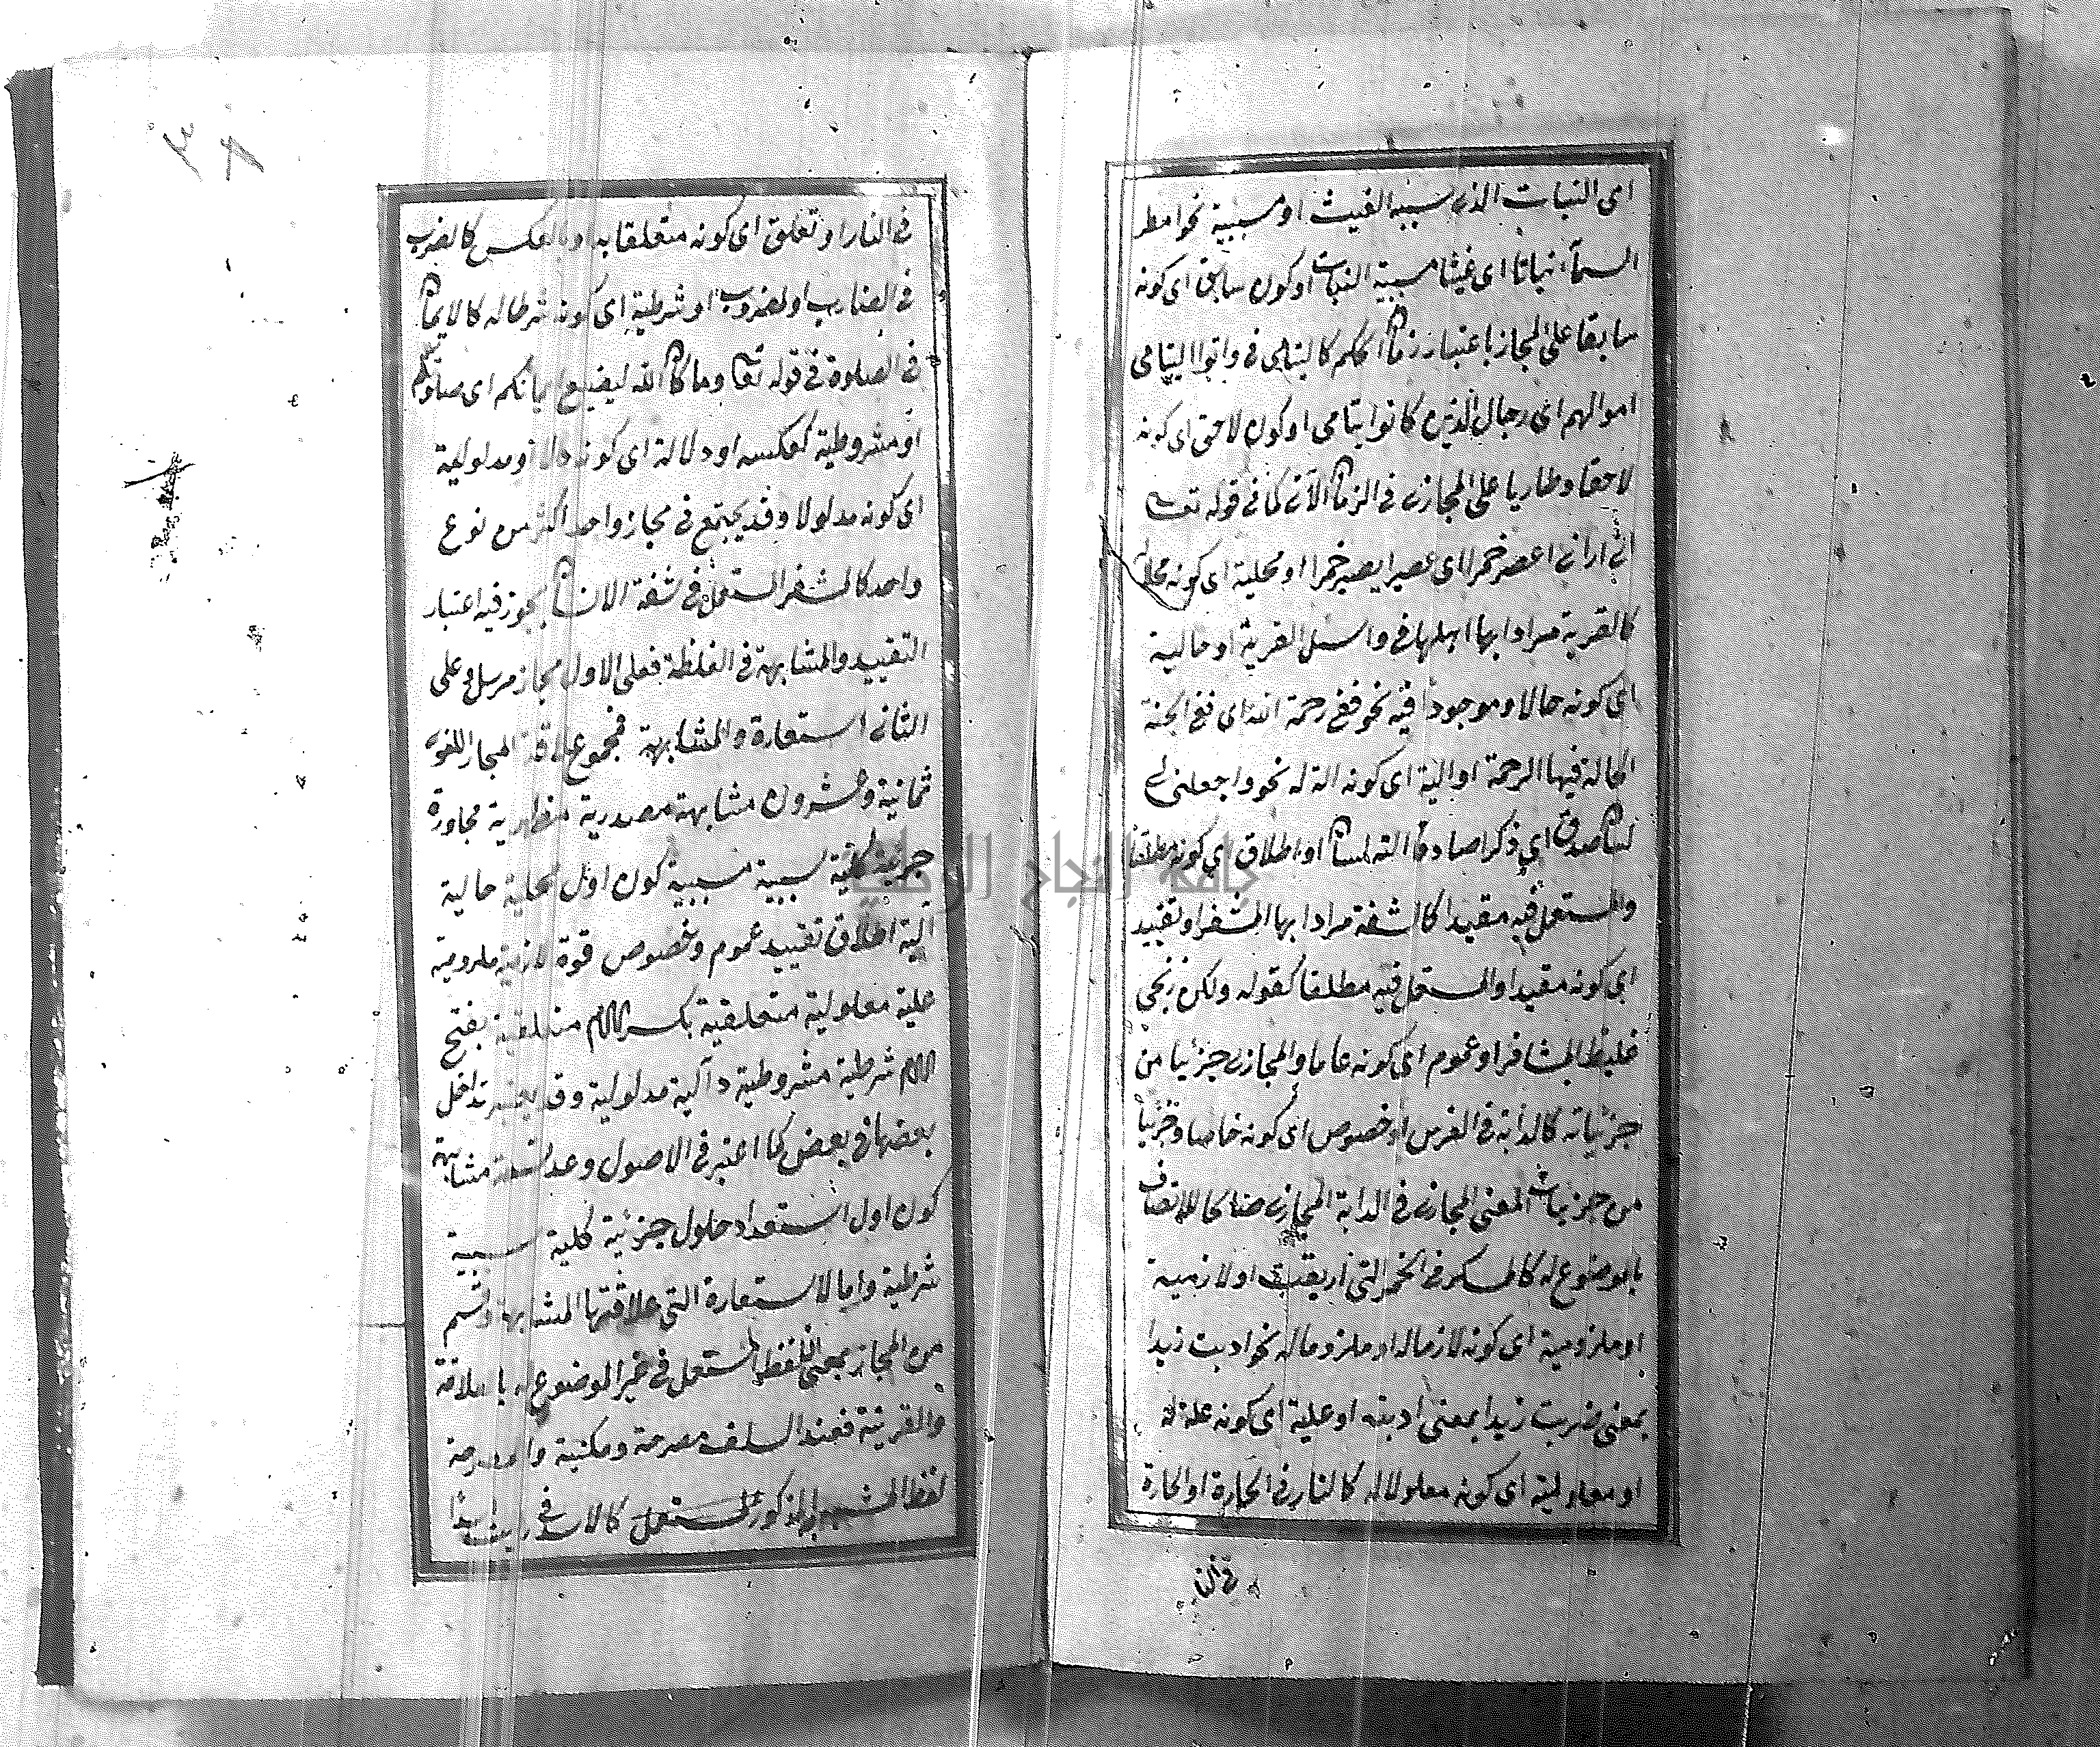 اى النبات الذى سببه الغيث او مسببية نحو امطر
السمآء نباتا اى غيثا مسببة النبات او كون سابق اى كونه
سابقا على المجاز باعتبار زمان الحكم كاليتامى فى واتوا اليتامى
اموالهم اى رجال الذين كانوا يتامى او كون لاحق اى كونه
لاحقا وطاريا على المجازى فى الزمان الآتى كما فى قوله تعا
انى ارانى اعصر خمرا اى عصيرا يصير خمرا او محلية اى كونه محلا
كالقرية مرادا بها اهلها فى واسئل القرية او حالية
اى كونه حالا وموجودا فيه نحو ففى رحمة الله اى ففى الجنة
الحالة فيها الرحمة او الية اى كونه الة له نحو واجعل لى
لسان صدق اى ذكرا صادقا الته لسان او اطلاق اى كونه مطلقا
والمستعمل فيه مقيدا كالشفة مرادا بها المشفر او تقييد
اى كونه مقيدا والمستعمل فيه مطلقا كقوله ولكن زنجى
غليظ المشافر او عموم اى كونه عاما والمجازى جزئيا من
جزئياته كالدابة فى الفرس او خصوص اى كونه خاصا وجزئيا
من جزئيات المعنى المجازى فى الدابة المجازى
بالموضوع له كالمسكر فى الخمر التى اريقت او لازمية
او ملزومية اى كونه لازما له او ملزوما له نحو ادبت زيدا
بمعنى ضربت زيدا بمعنى ادبته او علية اى كونه علة له
او معلولية اى كونه معلولا له كالنار فى الحرارة او الحرارة
فى النار
فى النار او تعلق اى كونه متعلقا به او بالعكس كالضرب
فى الضارب او المضروب او شرطية اى كونه شرطا له كالايمان
فى الصلوة فى قوله تعا وما كان الله ليضيع ايمانكم اى صلوتكم
او مشروطية كعكسه او دلالة اى كونه دالا او مدلولية
اى كونه مدلولا وقد يجتمع فى مجاز واحد اكثر من نوع
واحد كالمشفر المستعمل فى شفة الانسان يجوز فيه اعتبار
التقييد والمشابهة فى الغلظة فعلى الاول مجاز مرسل وعلى
الثانى استعارة والمشابهة فمجموع علاقة المجاز اللغوى
ثمانية وعشرون مشابهة مصدرية مظهرية مجاورة
جزئية كلية سببية مسببية كون اول محلية حالية
آلية اطلاق تقييد عموم وخصوص قوة لازمية ملزومية
علية معلولية متعلقية بكسر اللام متعلقية بفتح
اللام شرطية مشروطية دآلية مدلولية وقد يعتبر تداخل
بعضها فى بعض كما اعتبر فى الاصول وعد تسعة مشابهة
كون اول استعداد حلول جزئية كلية سببية
شرطية واما الاستعارة التى علاقتها المشابهة وقسم
من المجاز بمعنى اللفظ المستعمل فى غير الموضوع له بالعلاقة
والقرينة فعند السلف مصرحة ومكنية والمصرحة
لفظ المشبه به المذكور المستعمل كالاسد فى رايت اسدا
جامعة النجاح الوطنية